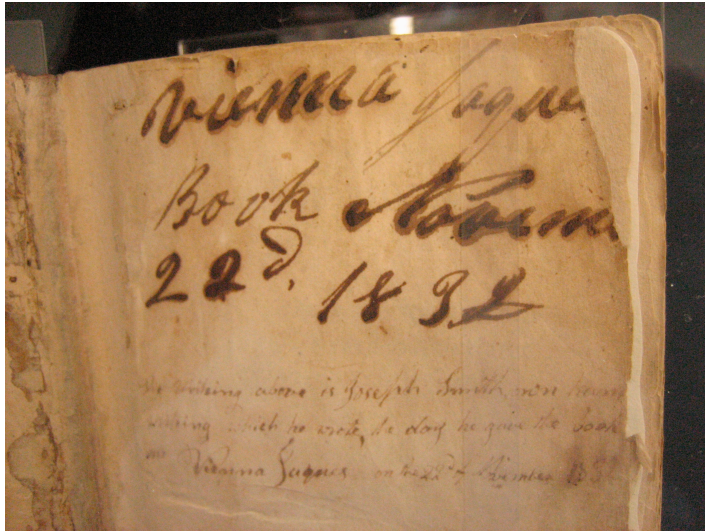 Vienna Jaque
Book Novem
22d. 1832
the writing above is Joseph Smith own
writing which he wrote the day he gave the book
Vienna Jaques on the 22d of November 183